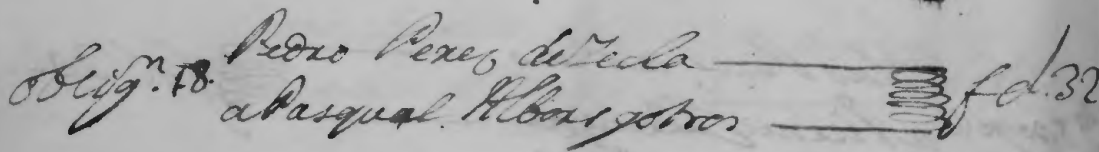 Obligⁿ. 18. Pedro Perez de Tecla
a Pasqual Albors y otros f d. 32